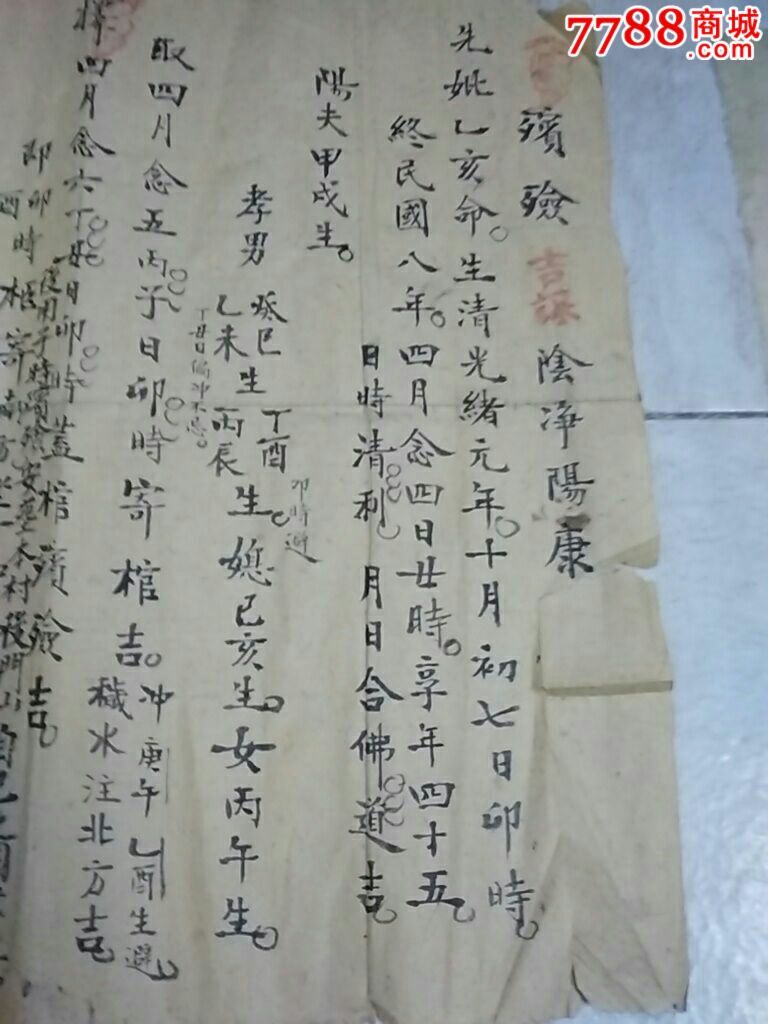 7788商城
.com
殯殮 吉課 陰淨陽康
先妣乙亥命。生清光緒元年。十月初七日卯時
終民國八年。四月念四日丑時。享年四十五
日時清利 月日合佛道吉
陽夫甲戌生。
孝男 癸巳 乙未 生 丁酉 丙辰 生。媳己亥生。女丙午生。
卯時避
丁丑日偏冲不忌。
取四月念五丙子日卯時寄棺吉。冲庚午乙酉生避
穢水注北方吉
擇四月念六丁丑日卯時蓋棺殯殮吉
卯時
酉時柩寄